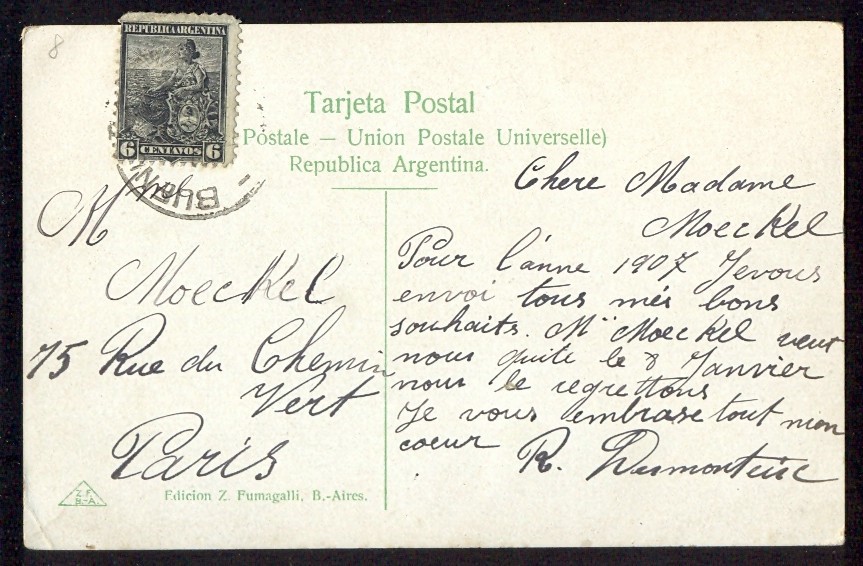 8
REPUBLICA ARGENTINA
6 CENTAVOS 6
BUEN
Tarjeta Postal
Postale — Union Postale Universelle)
Republica Argentina.
Mme
Moeckel
75 Rue du Chemin
Vert
Paris
Z.F.
B.-A.
Edicion Z. Fumagalli, B.-Aires.
Chere Madame
Moeckel
Pour l'anne 1907 Jevous
envoi tous més bons
souhaits. Mr Moeckel veut
nous quite le 8 Janvier
nous le regrettons
Je vous embrase tout mon
coeur
R.